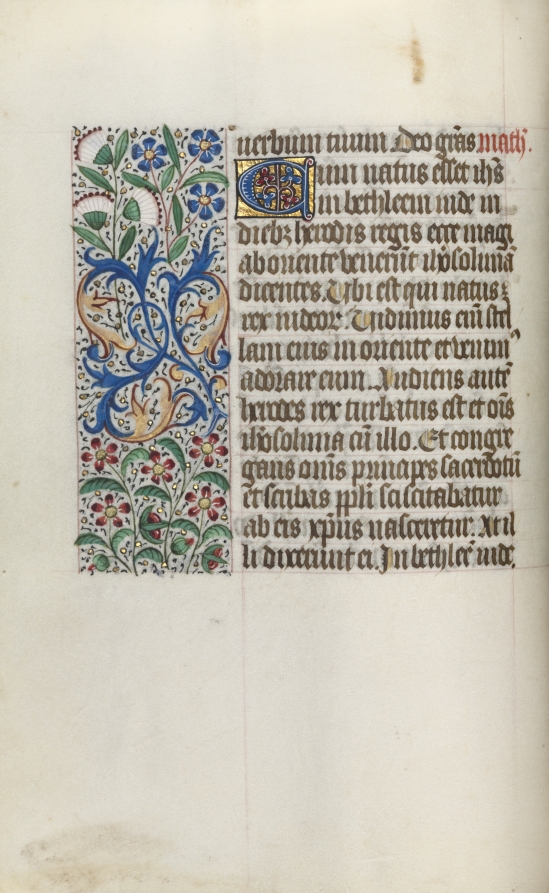 uerbum tuum. Deo grãs math̃.
Cum natus esset ihs̃
in bethleem iude in
diebꝫ herodis regis ecce magi
ab oriente venerũt iherosolimã
dicentes. Ubi est qui natusꝫ
rex iudeoꝝ. Uidimus eiĩ stel
lam eius in oriente et venim᾽
adorare eum. Audiens autẽ
herodes rex turbatus est et oĩs
iherosolima cũ illo. Et congre
gans omis principes sacerdotũ
et scribas ppłi sciscitabatur
ab eis xp̃us nasceretur. At il
li dixerunt ei. In bethleẽ iude.